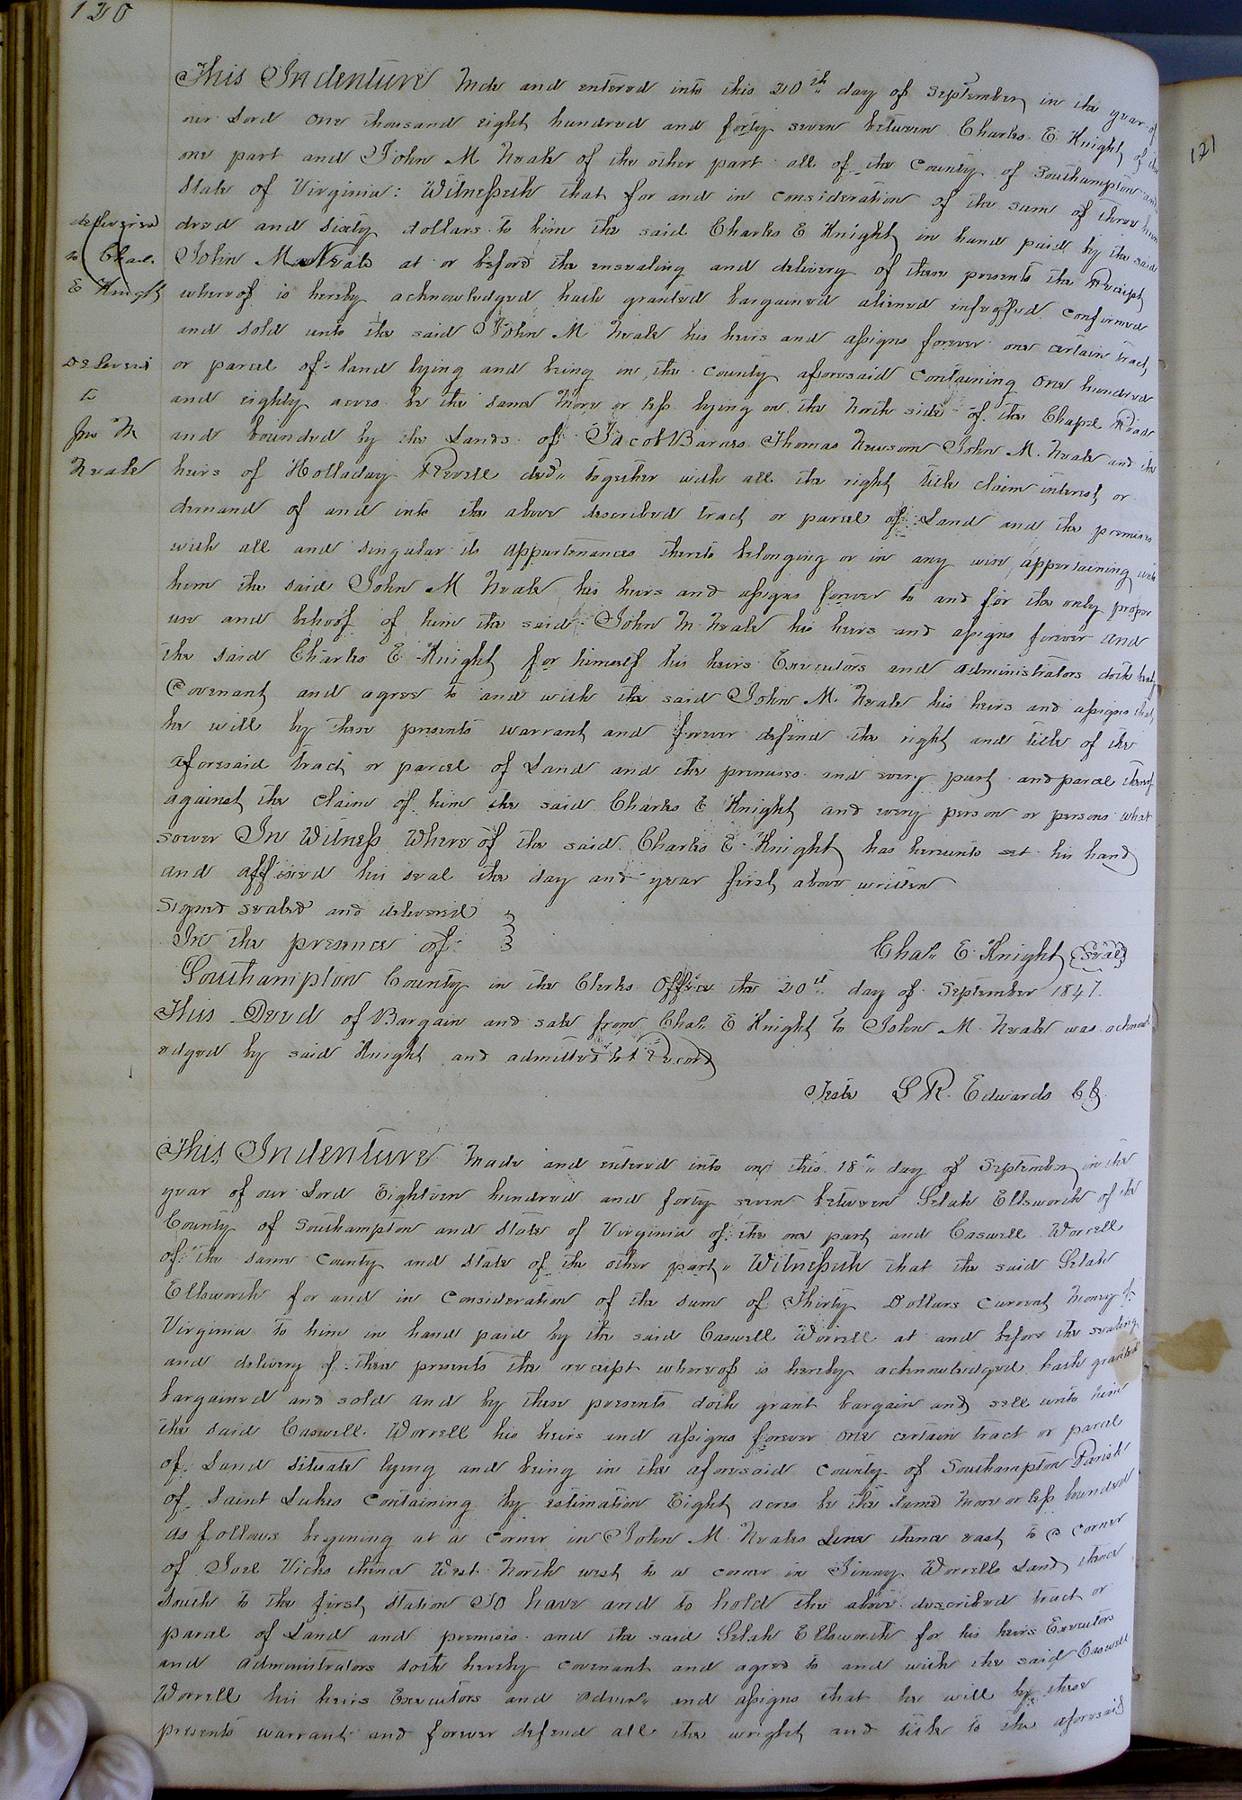 120
This Indenture Made and entered into this 20th day of September in the year of
our Lord one thousand eight hundred and forty seven between Charles E Knight of the
one part and John M Neale of the other part all of the County of Southampton and
State of Virginia: Witnesseth that for and in consideration of the sum of three hun
dred and sixty dollars to him the said Charles E Knight in hand paid by the said
John M Neale at or before the ensealing and delivery of these presents the Receipt
whereof is hereby acknowledged hath granted bargained aliened infeoffed confirmed
and sold unto the said John M Neale his heirs and assigns forever one certain tract
or parcel of land lying and being in the county aforesaid containing one hundred
and eighty acres be the same more or less lying on the North side of the Chapel Road
and bounded by the Lands of Jacob Barnes Thomas Newsom John M. Neale and the
heirs of Holladay Revell decd together with all the right title claim interest or
demand of and into the above described tract or parcel of Land and the premises
with all and singular its appurtenances thereto belonging or in any wise appertaining unto
him the said John M Neale his heirs and assigns forever to and for the only proper
use and behoof of him the said John M Neale his heirs and assigns forever And
the said Charles E Knight for himself his heirs Executors and administrators doth hereby
Covenant and agree to and with the said John M. Neale his heirs and assigns that
he will by these presents warrant and forever defend the right and title of the
aforesaid tract or parcel of Land and the premises and every part and parcel thereof
against the claim of him the said Charles E Knight and every person or persons what
soever In Witness Whereof the said Charles E Knight has hereunto set his hand
and affixed his seal the day and year first above written
Signed sealed and delivered
In the presence of
Chas. E. Knight (Seal)
Southampton County in the Clerks office the 20th day of September 1847.
This Deed of Bargain and sale from Chas. E Knight to John M. Neale was acknowl
edged by said Knight and admitted to Record
Teste L R. Edwards CC
delivered
to Chas.
E Knight
Delivered
to
Jno M
Neale
This Indenture Made and entered into on this 18th day of September in the
year of our Lord Eighteen hundred and forty seven between Selah Ellsworth of the
County of Southampton and State of Virginia of the one part and Caswell Worrell
of the same County and State of the other part Witnesseth that the said Selah
Ellsworth for and in Consideration of the Sum of Thirty Dollars Current Money of
Virginia to him in hand paid by the said Caswell Worrell at and before the sealing
and delivery of these presents the receipt whereof is hereby acknowledged hath granted
bargained and sold and by these presents doth grant bargain and sell unto him
the said Caswell Worrell his heirs and assigns forever one certain tract or parcel
of Land situate lying and being in the aforesaid county of Southampton Parish
of Saint Lukes Containing by estimation Eight acres be the same more or less bounded
as follows begining at a corner in John M. Neales Line thence east to a corner
of Joel Vicks thence West North west to a corner in Jinney Worrells Land thence
South to the first station To have and to hold the above described tract or
parcel of Land and premises and the said Selah Ellsworth for his heirs Executors
and administrators doth hereby covenant and agree to and with the said Caswell
Worrell his heirs Executors and admrs and assigns that he will by these
presents warrant and forever defend all the wright and title to the aforesaid
121